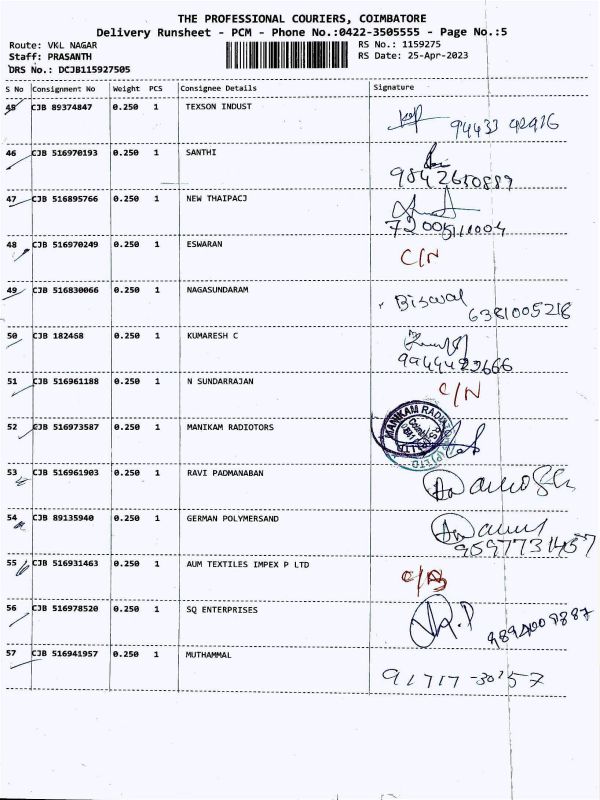 THE PROFESSIONAL COURIERS, COIMBATORE
Delivery Runsheet - PCM - Phone No.:0422-3505555 - Page No.:5
Route: VKL NAGAR RS No.: 1159275
Staff: PRASANTH RS Date: 25-Apr-2023
DRS No.: DCJB115927505
S No Consignment No Weight PCS Consignee Details Signature
45 CJB 89374847 0.250 1 TEXSON INDUST
46 CJB 516970193 0.250 1 SANTHI
9842650889
47 CJB 516895766 0.250 1 NEW THAIPACJ
48 CJB 516970249 0.250 1 ESWARAN C/N
49 CJB 516830066 0.250 1 NAGASUNDARAM Biswal
6381005218
50 CJB 182468 0.250 1 KUMARESH C
9944422666
51 CJB 516961188 0.250 1 N SUNDARRAJAN C/N
52 CJB 516973587 0.250 1 MANIKAM RADIOTORS
53 CJB 516961903 0.250 1 RAVI PADMANABAN
54 CJB 89135940 0.250 1 GERMAN POLYMERSAND
55 CJB 516931463 0.250 1 AUM TEXTILES IMPEX P LTD
56 CJB 516978520 0.250 1 SQ ENTERPRISES
57 CJB 516941957 0.250 1 MUTHAMMAL